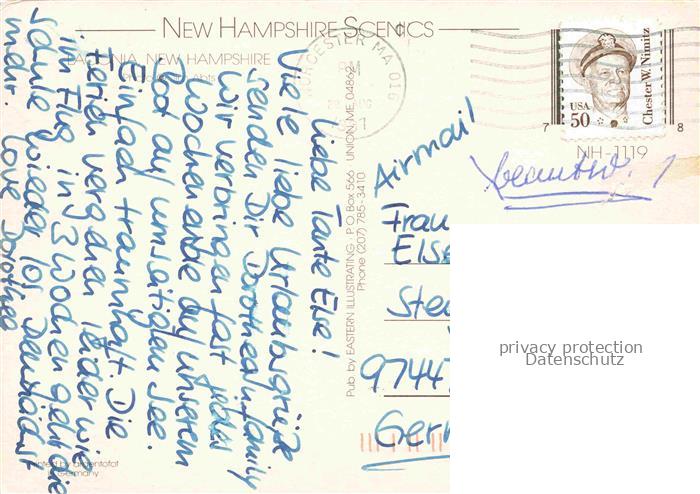 NEW HAMPSHIRE SCENICS
LACONIA, NEW HAMPSHIRE
WORCESTER MA 016
USA
50
Chester W. Nimitz
7 8
NIH-1119
Liebe Tante Else!
Viele liebe Urlaubsgrüße
senden Dir Dorothea u. family
Wir verbringen fast jedes
Wochenende auf unserem
Boot auf umseitigem See.
Einfach traumhaft. Die
Ferien vergehen leider wie
im Flug in 3 Wochen geht die
Schule wieder los. Demnächst
mehr. Love Dorothea
Pub. by EASTERN ILLUSTRATING, P.O. Box 566 UNION, ME 04862
Phone (207) 785-3410
Airmail
Frau
Else
Ste
97447
Ger
privacy protection
Datenschutz
in Germany